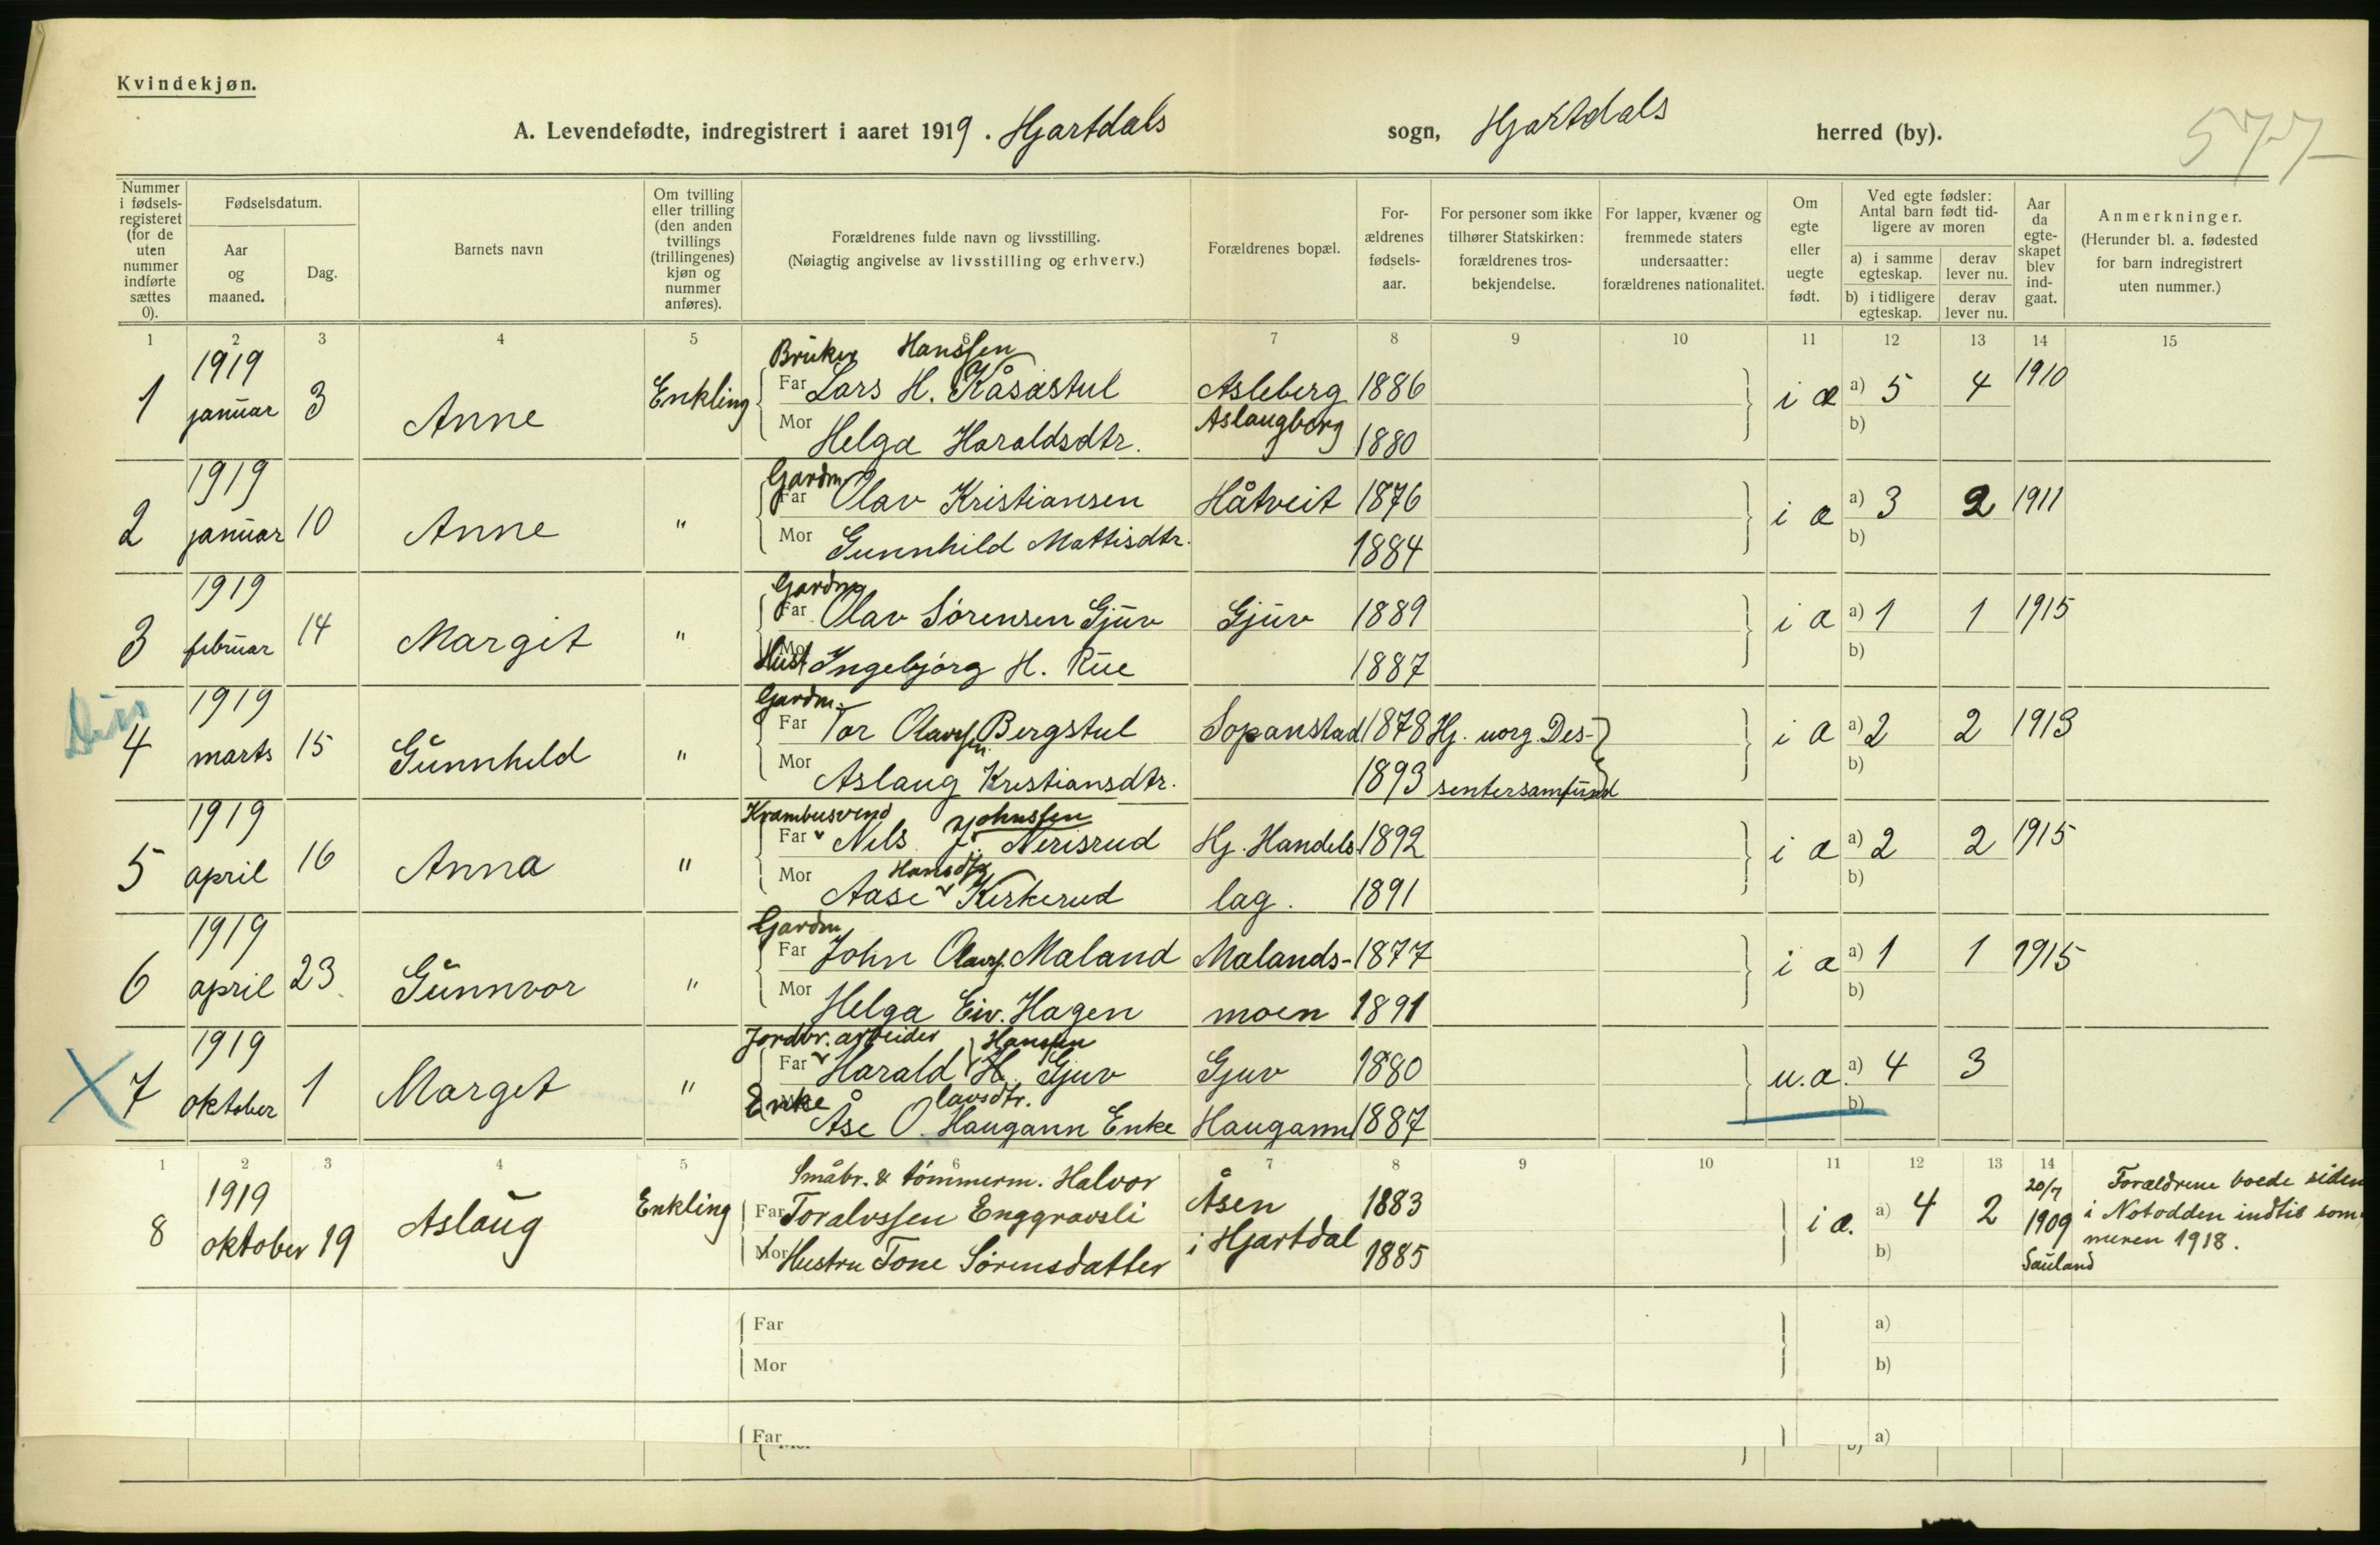 Kvindekjøn.
A. Levendefødte, indregistrert i aaret 1919. Hjartdals sogn, Hjartdals herred (by).
577
Nummer i fødselsregisteret (for de uten nummer indførte sættes 0).
Fødselsdatum.
Aar og maaned.
Dag.
Barnets navn
Om tvilling eller trilling (den anden tvillings (trillingenes) kjøn og nummer anføres).
Forældrenes fulde navn og livsstilling.
(Nøiagtig angivelse av livsstilling og erhverv.)
Forældrenes bopæl.
For-ældrenes fødsels-aar.
For personer som ikke tilhører Statskirken: forældrenes tros-bekjendelse.
For lapper, kvæner og fremmede staters undersaatter: forældrenes nationalitet.
Om egte eller uegte født.
Ved egte fødsler: Antal barn født tid-ligere av moren
a) i samme egteskap.
derav lever nu.
b) i tidligere egteskap.
derav lever nu.
Aar da egte-skapet blev ind-gaat.
Anmerkninger.
(Herunder bl. a. fødested for barn indregistrert uten nummer.)
1 2 3 4 5 6 7 8 9 10 11 12 13 14 15
Bruker Hanssen
1 1919 januar 3 Anne Enkling Far Lars H. Kåsastul Asleberg 1886 i æ a) 5 4 1910
Mor Helga Haraldsdtr. Aslaugberg 1880 b)
Gardm
2 1919 januar 10 Anne " Far Olav Kristiansen Håtveit 1876 i æ a) 3 2 1911
Mor Gunnhild Mattisdtr. 1884 b)
Gardm
3 1919 februar 14 Margit " Far Olav Sørensen Gjuv Gjuv 1889 i æ a) 1 1 1915
Mor Hust Ingebjørg H. Rue 1887 b)
Gardm.
4 1919 marts 15 Gunnhild " Far Tor Olavssen Bergstul Sopanstad 1878 Hj. uorg. Des- i æ a) 2 2 1913
Mor Aslaug Kristiansdtr. 1893 sentersamfund b)
Krambusvend Johnssen
5 1919 april 16 Anna " Far Nils J. Nerisrud Hj. Handels 1892 i æ a) 2 2 1915
Hansdtr
Mor Aase Kirkerud lag. 1891 b)
Gardm
6 1919 april 23 Gunnvor " Far John Olavs. Maland Malands- 1877 i æ a) 1 1 1915
Mor Helga Eiv. Hagen moen 1891 b)
Jordbr. arbeider Hanssen
7 1919 oktober 1 Marget " Far Harald H. Gjuv Gjuv 1880 u. æ. a) 4 3
Enke lavsdtr.
Åse O Haugann Enke Haugann 1887 b)
1 2 3 4 5 6 7 8 9 10 11 12 13 14
Småbr. & tømmerm. Halvor
8 1919 oktober 19 Aslaug Enkling Far Toralvssen Enggravsli Åsen 1883 i æ. a) 4 2 20/7 1909 Sauland
Mor Hustru Tone Sørensdatter i Hjartdal 1885 b)
Forældrene boede siden
i Notodden indtil som-
meren 1918.
Far a)
Mor b)
Far a)